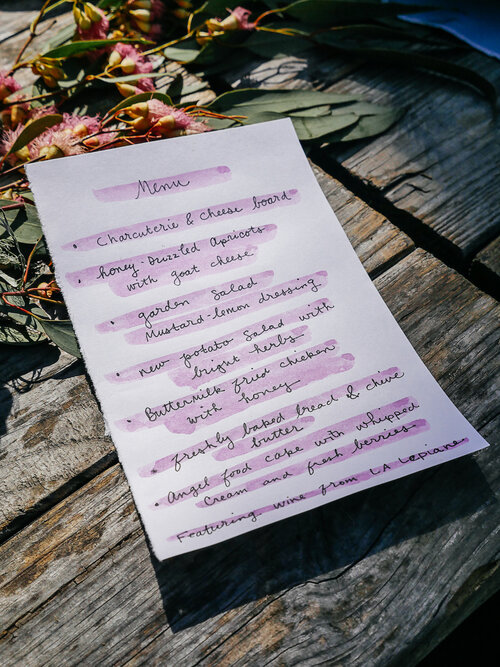 Menu
• Charcuterie & cheese board
• honey-Drizzled Apricots
with goat cheese
• garden Salad
Mustard-lemon dressing
• new potato Salad with
bright herbs
• Buttermilk fried chicken
with honey
• freshly baked bread & chive
butter
• Angel food cake with whipped
Cream and fresh berries
Featuring wine from LA Lepiane